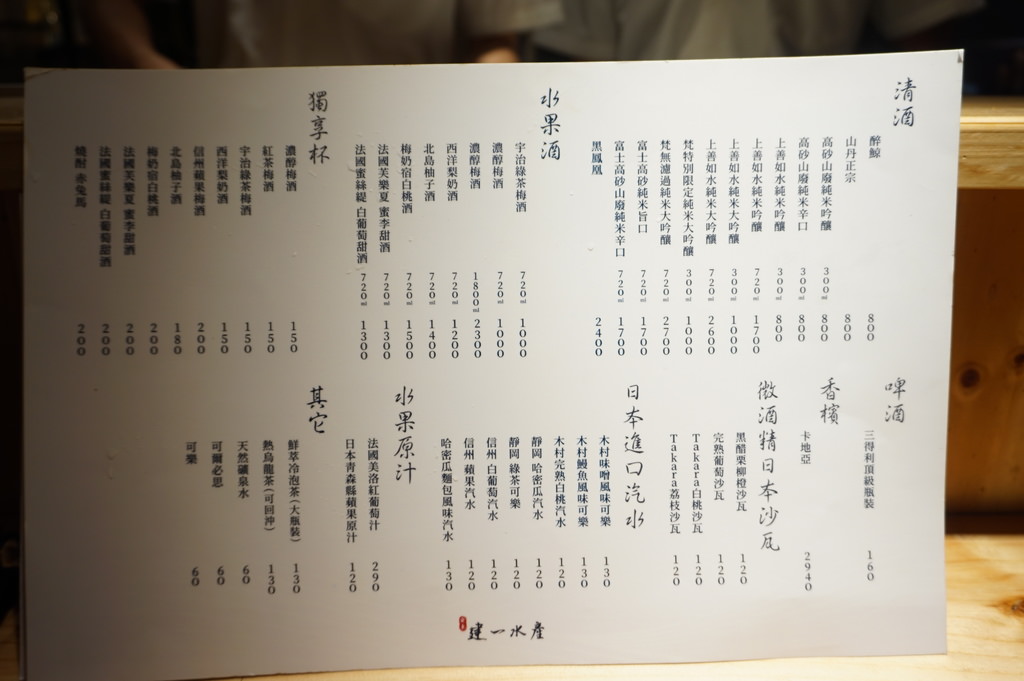 清酒
醉鯨 800
山丹正宗 800
高砂山廢純米吟釀 300ml 800
高砂山廢純米辛口 300ml 800
上善如水純米吟釀 300ml 800
上善如水純米吟釀 720ml 1700
上善如水純米大吟釀 300ml 1000
上善如水純米大吟釀 720ml 2600
梵特別限定純米大吟釀 300ml 1000
梵無濾過純米大吟釀 720ml 2700
富士高砂純米旨口 720ml 1700
富士高砂山廢純米辛口 720ml 1700
黑鳳凰 2400
水果酒
宇治綠茶梅酒 720ml 1000
濃醇梅酒 720ml 1000
濃醇梅酒 1800ml 2300
西洋梨奶酒 720ml 1200
北島柚子酒 720ml 1400
梅奶宿白桃酒 720ml 1500
法國芙樂夏 蜜李甜酒 720ml 1300
法國蜜絲緹 白葡萄甜酒 720ml 1300
獨享杯
濃醇梅酒 150
紅茶梅酒 150
宇治綠茶梅酒 150
西洋梨奶酒 150
信州蘋果梅酒 200
北島柚子酒 180
梅奶宿白桃酒 200
法國芙樂夏 蜜李甜酒 200
法國蜜絲緹 白葡萄甜酒 200
燒酎 赤兔馬 200
啤酒
三得利頂級瓶裝 160
香檳
卡地亞 2940
微酒精日本沙瓦
黑醋栗柳橙沙瓦 120
完熟葡萄沙瓦 120
Takara白桃沙瓦 120
Takara荔枝沙瓦 120
日本進口汽水
木村味噌風味可樂 130
木村鰻魚風味可樂 130
木村完熟白桃汽水 120
靜岡 哈密瓜汽水 120
靜岡 綠茶可樂 120
信州 白葡萄汽水 120
信州 蘋果汽水 120
哈密瓜麵包風味汽水 130
水果原汁
法國美洛紅葡萄汁 290
日本青森縣蘋果原汁 120
其它
鮮萃冷泡茶(大瓶裝) 130
熱烏龍茶(可回沖) 130
天然礦泉水 60
可爾必思 60
可樂 60
建一水產